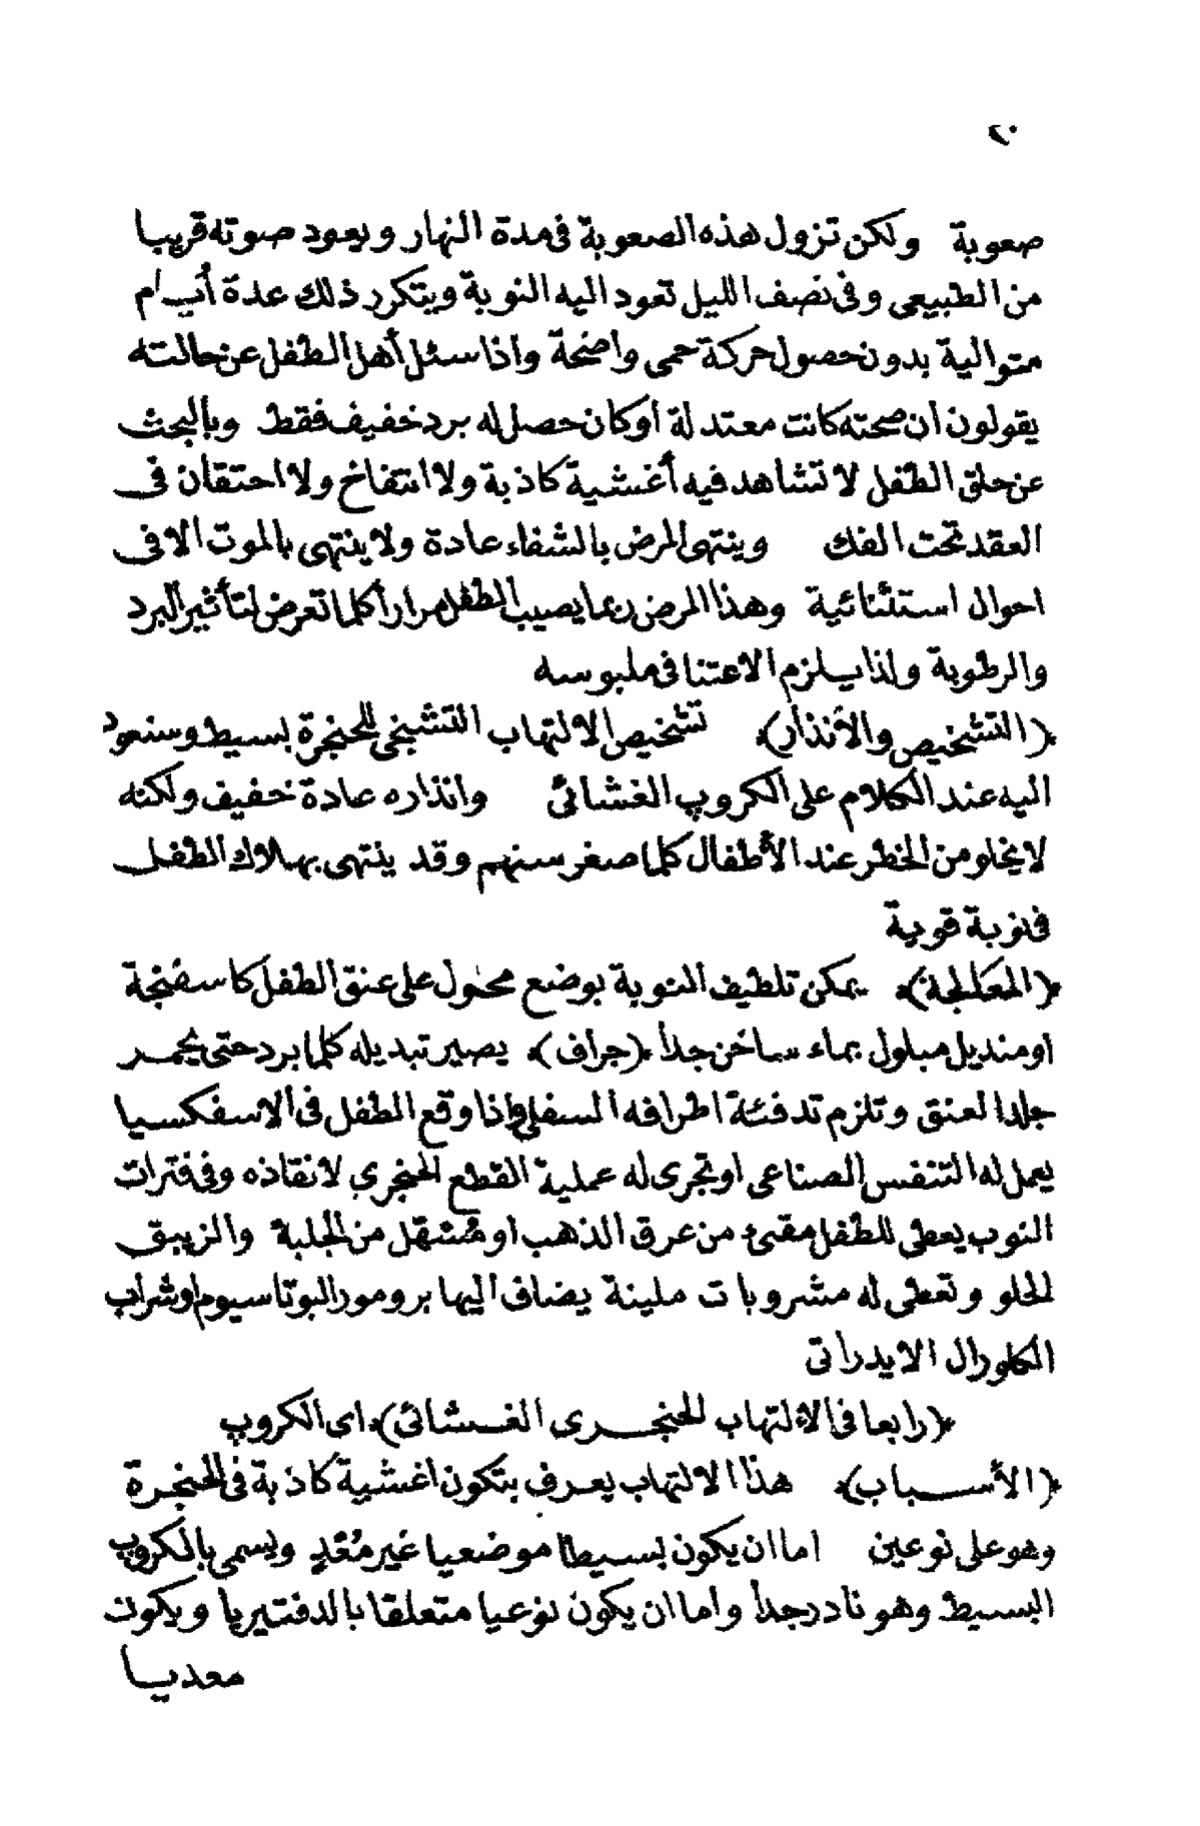 ٢٠
صعوبة ولكن تزول هذه الصعوبة فى مدة النهار ويعود صوته قريبا
من الطبيعى وفى نصف الليل تعود اليه النوبة ويتكرر ذلك عدة أيام
متوالية بدون حصول حركة حمى واضحة واذا سئل أهل الطفل عن حالته
يقولون ان صحته كانت معتدلة اوكان حصل له برد خفيف فقط وبالبحث
عن حلق الطفل لا تشاهد فيه أغشية كاذبة ولا انتفاخ ولا احتقان فى
العقد تحت الفك وينتهى المرض بالشفاء عادة ولا ينتهى بالموت الا فى
احوال استثنائية وهذا المرض ربما يصيب الطفل مرارا كلما تعرض لتأثير البرد
والرطوبة ولذا يلزم الاعتنا فى ملبوسه
﴿التشخيص والأنذار﴾ تشخيص الالتهاب التشنجى للحنجرة بسيط وسنعود
اليه عند الكلام على الكروب الغشائى وانذاره عادة خفيف ولكنه
لا يخلو من الخطر عند الأطفال كلما صغر سنهم وقد ينتهى بهلاك الطفل
فى نوبة قوية
﴿المعالجة﴾ يمكن تلطيف النوبة بوضع محول على عنق الطفل كاسفنجة
اومنديل مبلول بماء ساخن جدا ﴿جراف﴾ يصير تبديله كلما برد حتى يحمر
جلد العنق وتلزم تدفئة اطرافه السفلى واذا وقع الطفل فى الاسفكسيا
يعمل له التنفس الصناعى اوتجرى له عملية القطع الحنجرى لانقاذه وفى فترات
النوب يعطى للطفل مقيئ من عرق الذهب او مسهل من الجلبة والزيبق
الحلو وتعطى له مشروبات ملينة يضاف اليها برومور البوتاسيوم اوشراب
الكلورال الايدراتى
﴿رابعا فى الالتهاب الحنجرى الغشائى﴾ اى الكروب
﴿الأسباب﴾ هذا الالتهاب يعرف بتكون اغشية كاذبة فى الحنجرة
وهو على نوعين اما ان يكون بسيطا موضعيا غير مُعْدٍ ويسمى بالكروب
البسيط وهو نادر جدا واما ان يكون نوعيا متعلقا بالدفتيريا ويكون
معديا